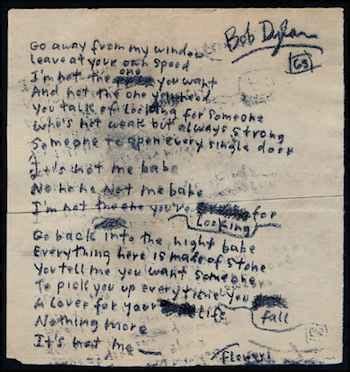 Bob Dylan
63
Go away from my window
Leave at your own speed
I'm not the one you want
And not the one you need
You talk of looking for someone
Who's not weak but always strong
Someone to open every single door
It's not me babe
No no no Not me babe
I'm not the one you're looking for
Go back into the night babe
Everything here is made of stone
You tell me you want someone
To pick you up every time you fall
A lover for your life
Nothing more
It's not me
flowers